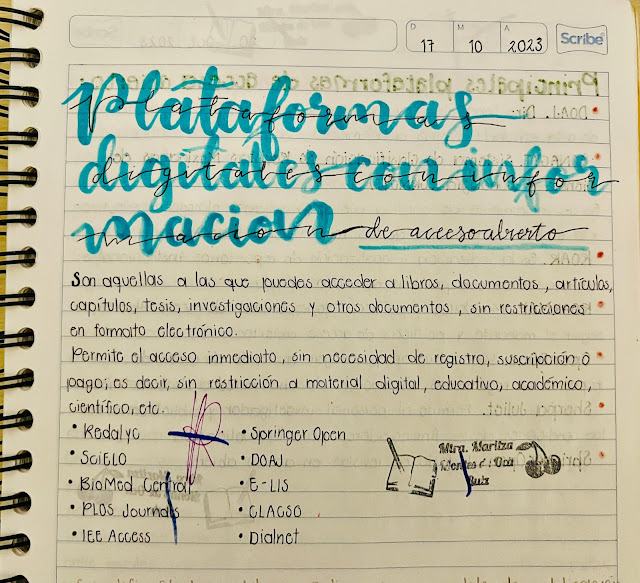 D M A
17 10 2023 Scribe
Plataformas
digitales con infor
macion de acceso abierto
Son aquellas a las que puedes acceder a libros, documentos, artículos,
capítulos, tesis, investigaciones y otros documentos, sin restricciones
en formato electrónico.
Permite el acceso inmediato, sin necesidad de registro, suscripción ó
pago; es decir, sin restricción a material digital, educativo, académico,
científico, etc.
• Redalyc
• SciELO
• BioMed Central
• PLOS Journals
• IEE Access
• Springer Open
• DOAJ
• E-LIS
• CLACSO
• Dialnet
Mtra. Maritza
Ruiz